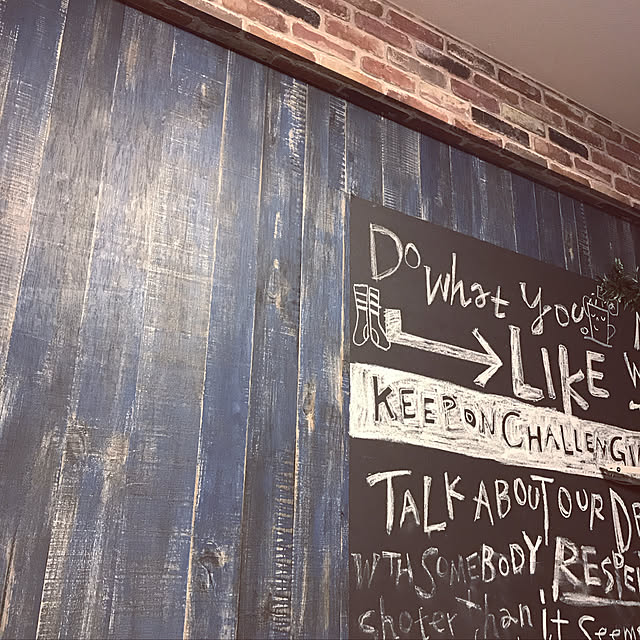 Do what you
LIKE W
KEEP ON CHALLENGI
TALK ABOUT OUR DR
WITH SOMEBODY RESPE
shoter than it seems